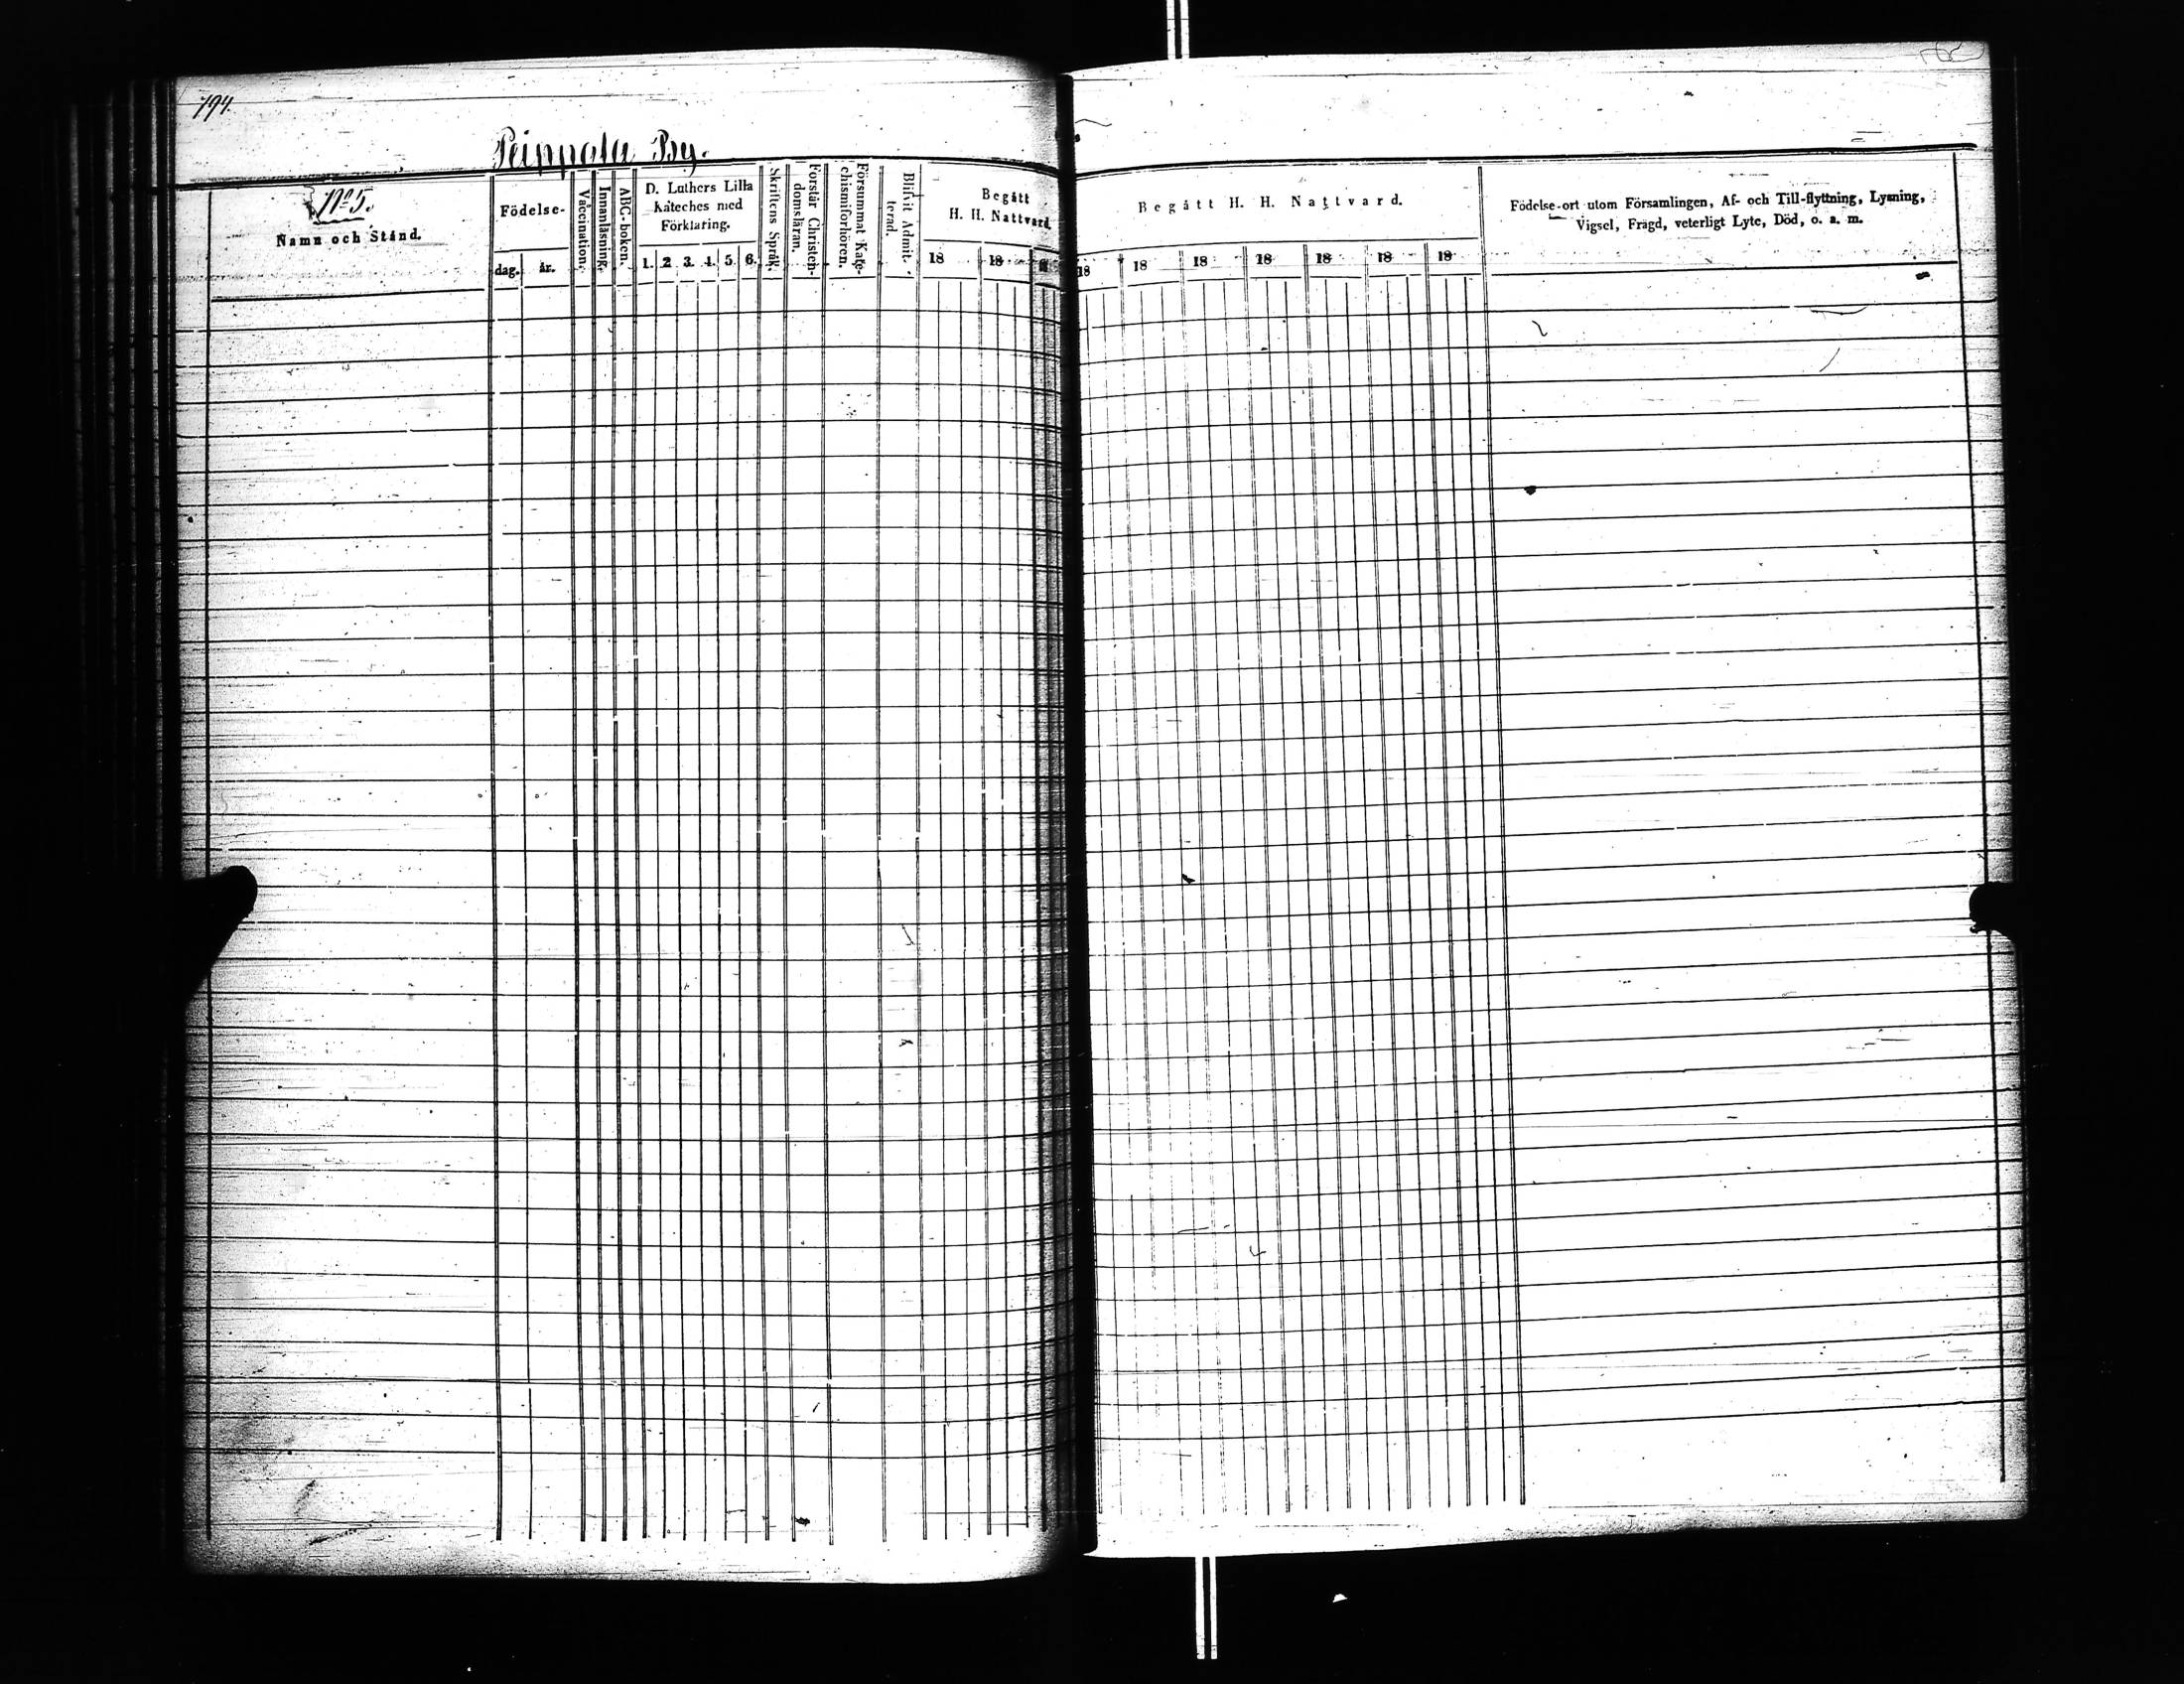 194.
Peippola By.
No 5.
Namn och Stånd.
Födelse-
dag. år.
Vaccination.
Innanläsning.
ABC-boken.
D. Luthers Lilla
Kateches med
Förklaring.
1. 2. 3. 4. 5. 6.
Skriftens Språk.
Förstår Christen-
domsläran.
Försummat Kate-
chismiförhören.
Blifvit Admit-
terad.
Begått
H. H. Nattvard.
18 18 18
Begått H. H. Nattvard.
18 18 18 18 18 18 18
Födelse-ort utom Församlingen, Af- och Till-flyttning, Lysning,
Vigsel, Frägd, veterligt Lyte, Död, o. a. m.